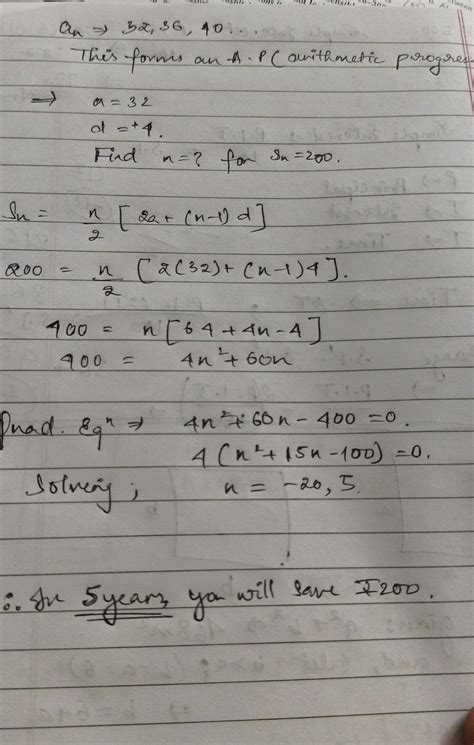 an ⇒ 32, 36, 40...
This forms an A.P (arithmetic progres
⇒ a = 32
d = +4.
Find n = ? for Sn = 200.
Sn = n/2 [2a + (n-1) d]
200 = n/2 [2(32) + (n-1)4].
400 = n[64 + 4n - 4]
400 = 4n² + 60n
Quad. Eqⁿ ⇒ 4n² + 60n - 400 = 0.
4(n² + 15n - 100) = 0.
Solving; n = -20, 5.
∴ In 5 years you will save ₹200.